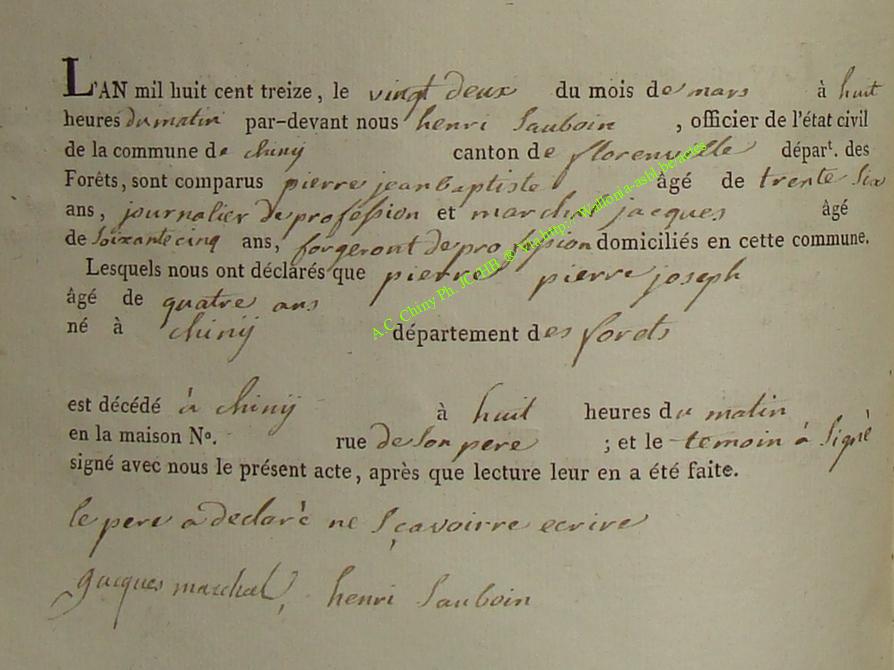 L'AN mil huit cent treize, le vingt deux du mois de mars à huit
heures du matin par-devant nous henri Sauboin , officier de l'état civil
de la commune de chinij canton de florenville départ. des
Forêts, sont comparus pierre jean baptiste âgé de trente Six
ans, journalier de profession et marchal jacques âgé
de Soixante cinq ans, forgeront de profession domiciliés en cette commune.
Lesquels nous ont déclarés que pierre pierre joseph
âgé de quatre ans
né à chinij département des forets
est décédé à chinij à huit heures du matin
en la maison No. rue de Son pere ; et le temoin à Signé
signé avec nous le présent acte, après que lecture leur en a été faite.
le pere a declaré ne Sçavoirre ecrire
jacques marchal, henri Sauboin
A.C. Chiny Ph. JCHB @ Via http://Wallonia-asbl.be/actes